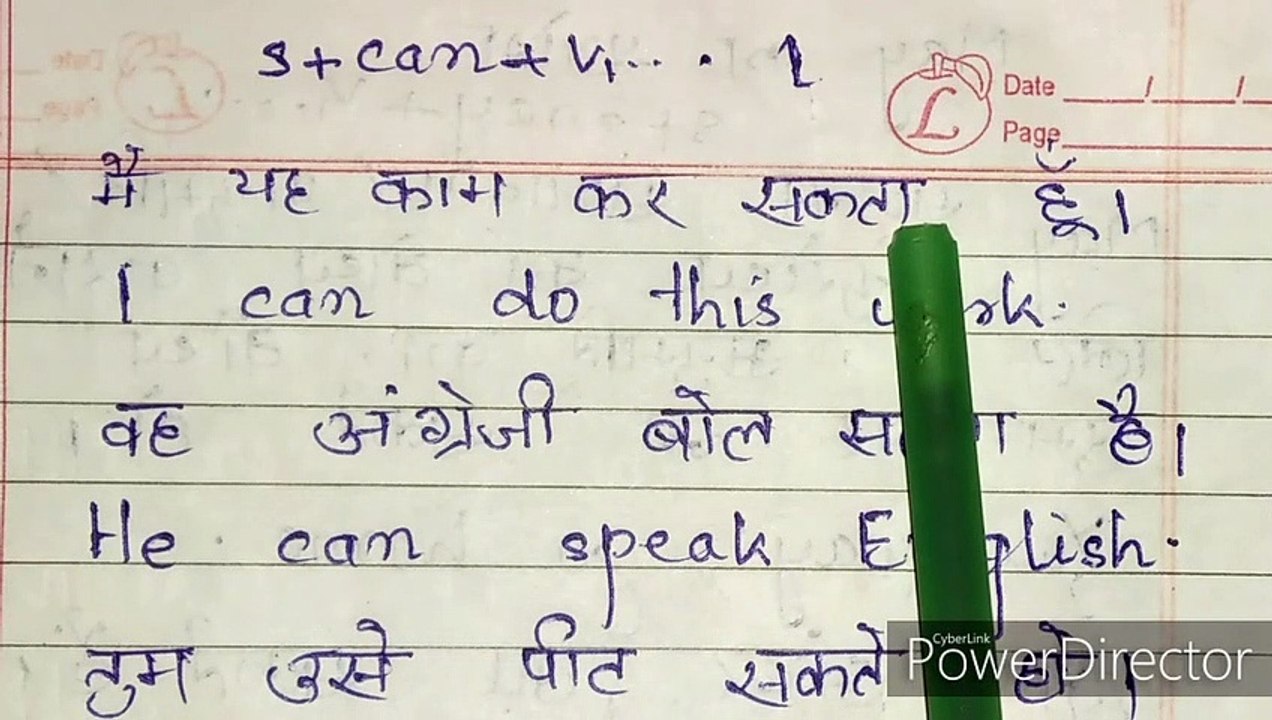 s+can+V₁... 1
Date
Page
मैं यह काम कर सकता हूँ।
I can do this work.
वह अंग्रेजी बोल सकता है।
He can speak English.
तुम उसे पीट सकते हो।
CyberLink
PowerDirector